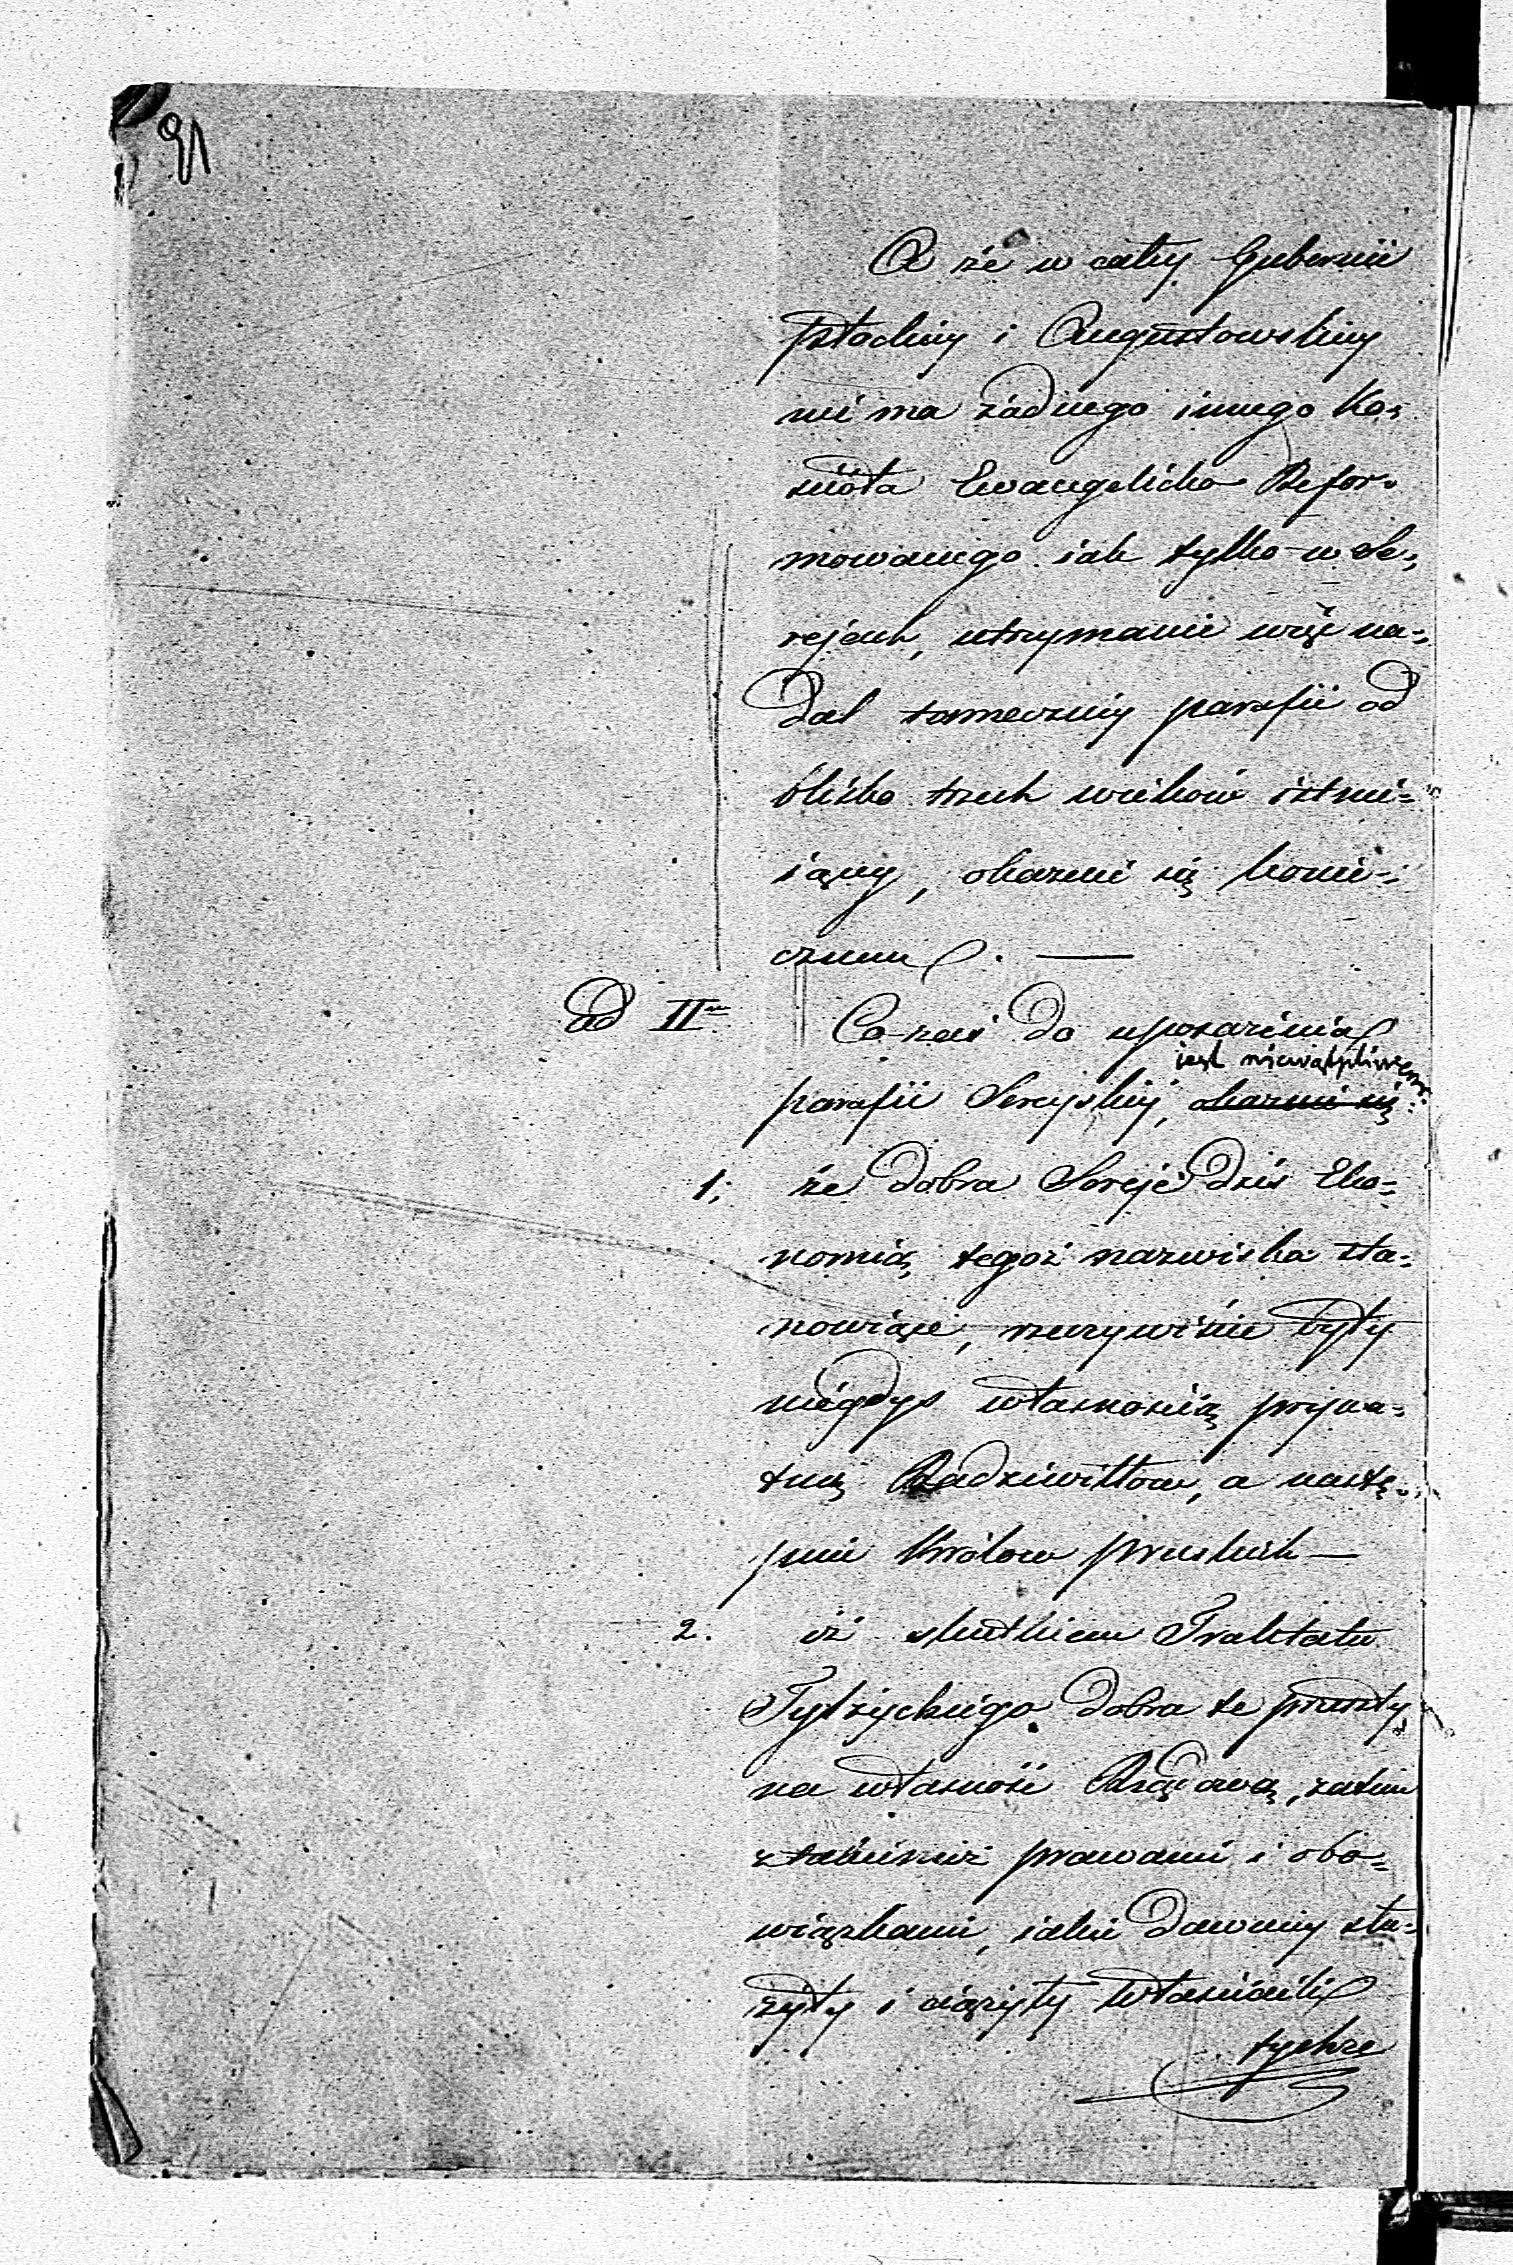 91
A że w całey Gubernii
Płockiey i Augustowskiey
nie ma żadnego innego Ko-
ścioła Ewangelicko Refor-
mowanego iak tylko w Se-
rejach, utrzymanie więc na-
dal tameczney parafii od
blisko trzech wieków istnie-
iącey, okazuie się koniecznem.
ad IIm Co zaś do uposażenia
iest niewątpliwem
parafii Sereyskiey, okazuie się
1; że dobra Sereje dziś Eko-
nomią tegoż nazwiska sta-
nowiące, rzeczywiście były
niegdyś własnością prywa-
tną Radziwiłłow, a nastę-
pnie Królow pruskich —
2. iż skutkiem Traktatu
Tylżyckiego dobra te przeszły
na własność Rządową, zatem
z takiemiż prawami i obo-
wiązkami, iakie dawniey słu-
żyły i ciążyły właścicieli
tychże